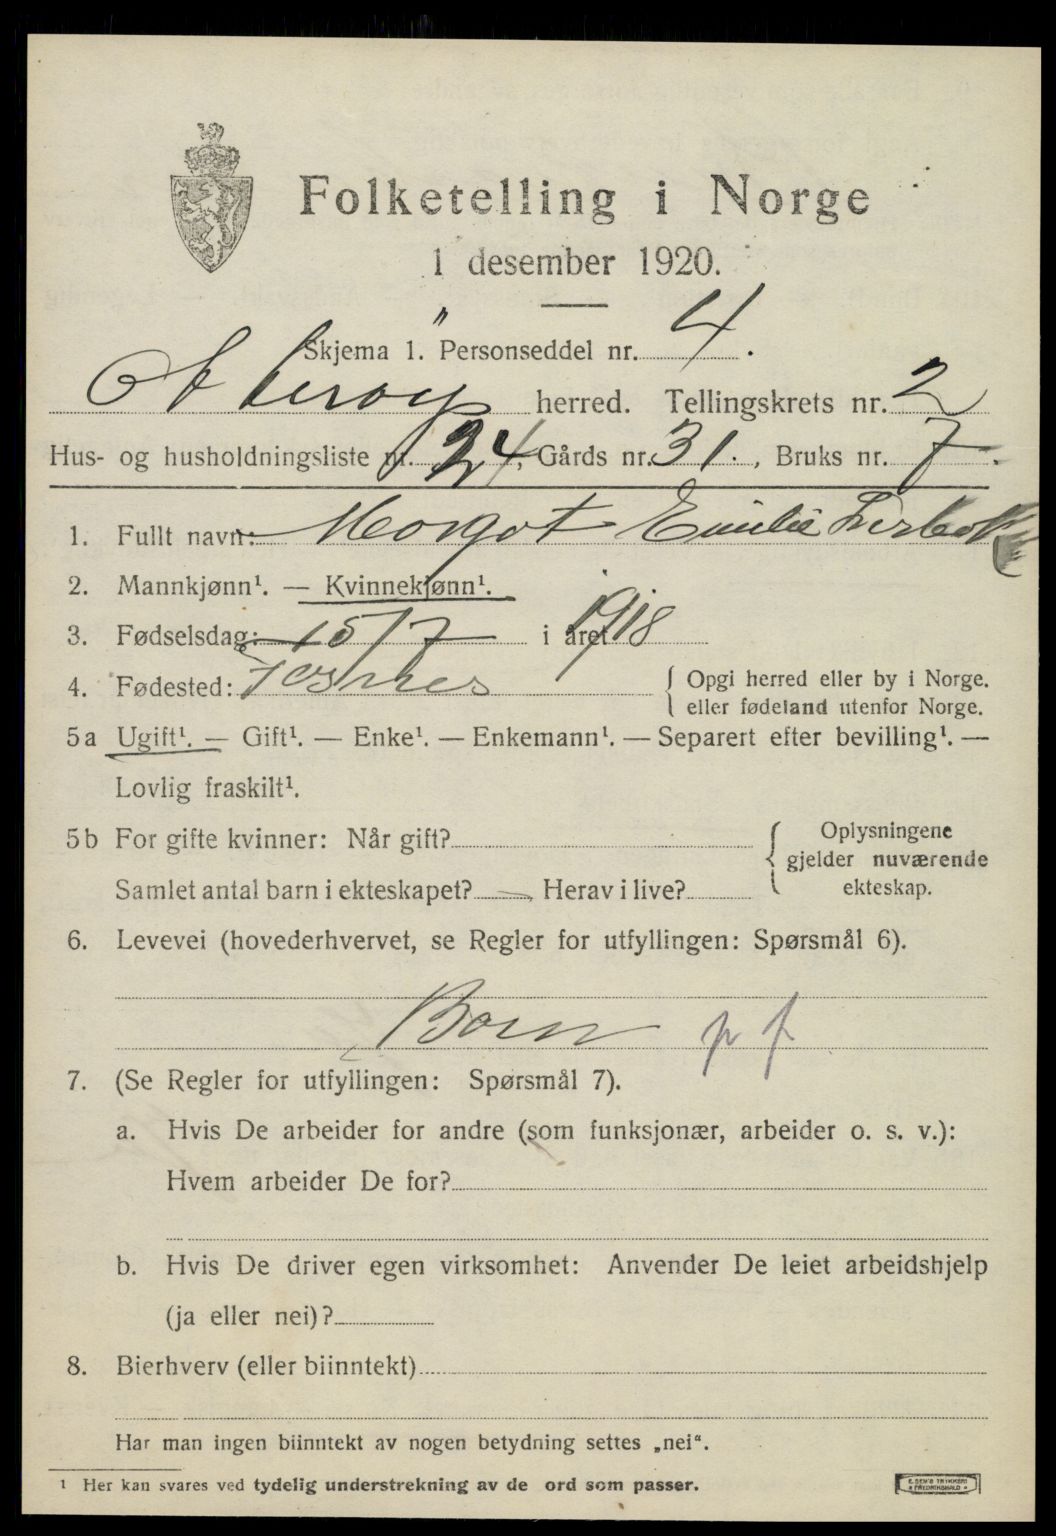 Folketelling i Norge
1 desember 1920.
Skjema 1. Personseddel nr. 4.
Otterøy herred. Tellingskrets nr. 2
Hus- og husholdningsliste nr. 24, Gårds nr. 31., Bruks nr. 7.
1. Fullt navn: Margot Emilie
2. Mannkjønn¹. — Kvinnekjønn¹.
3. Fødselsdag: 15/7 i året 1918
4. Fødested: Fosnes { Opgi herred eller by i Norge.
eller fødeland utenfor Norge.
5a Ugift¹. — Gift¹. — Enke¹. — Enkemann¹. — Separert efter bevilling¹. —
Lovlig fraskilt¹.
5b For gifte kvinner: Når gift? { Oplysningene
gjelder nuværende
Samlet antal barn i ekteskapet? —, Herav i live? ekteskap.
6. Levevei (hovederhvervet, se Regler for utfyllingen: Spørsmål 6).
Barn p f
7. (Se Regler for utfyllingen: Spørsmål 7).
a. Hvis De arbeider for andre (som funksjonær, arbeider o. s. v.):
Hvem arbeider De for?
b. Hvis De driver egen virksomhet: Anvender De leiet arbeidshjelp
(ja eller nei)?
8. Bierhverv (eller biinntekt)
Har man ingen biinntekt av nogen betydning settes „nei".
¹ Her kan svares ved tydelig understrekning av de ord som passer.